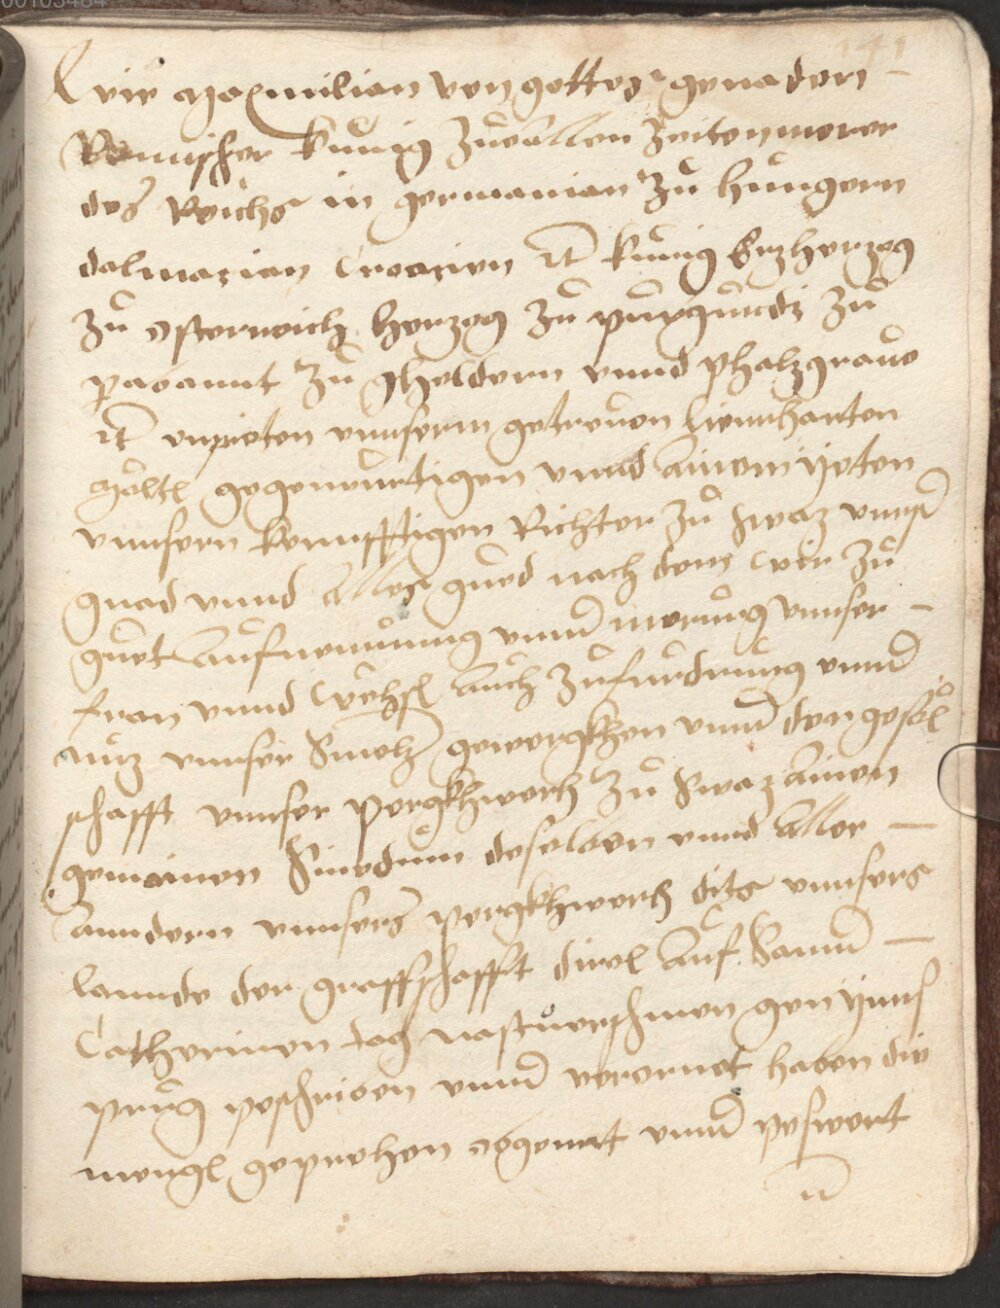 141
Wir Maxmilian von gottes genaden
Romischer kunig zuo allen zeiten merer
des Reichs in germanian zu hungern
dalmazian Croacien etc kunig Erzherzog
zu osterreich herzog zu purgundi zu
prabannt zu gheldern vnnd phalzgraue
etc enpieten vnnserm getreuen lienharten
gegenwurtigen vnnd ainem yeten
vnnsern kunfftigen Richter zu Swaz vnnser
gnad vnnd alles gued nach dem wir zu
guet aufnemung vnnd merung vnnser
fron vnnd Wechsl auch zu furdrung vnnd
nuz vnnser Smelzer gewergkhen vnnd der gesel
schafft vnnser pergkhwerch zu Swaz ainen
gemainen Sinodum deselben vnnd aller
anndern vnnsers pergkhwerch dits vnnsers
lannds der graffschafft dirol auf Sannd
Catherinen tag nastuerschinen gen ynns
prug peschriben vnnd verornet haben die
mengl geprehen obgemet vnnd peswert